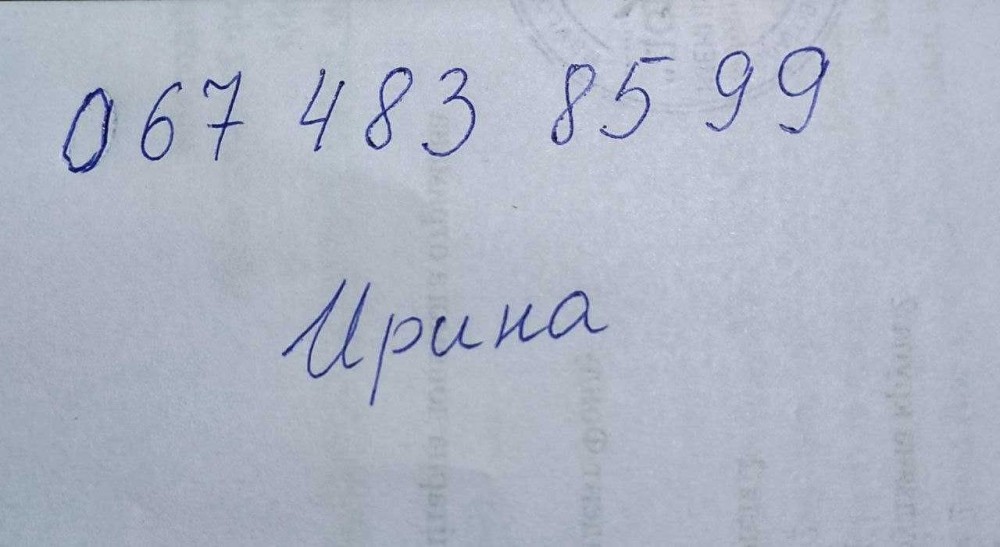 067 483 85 99
Ирина